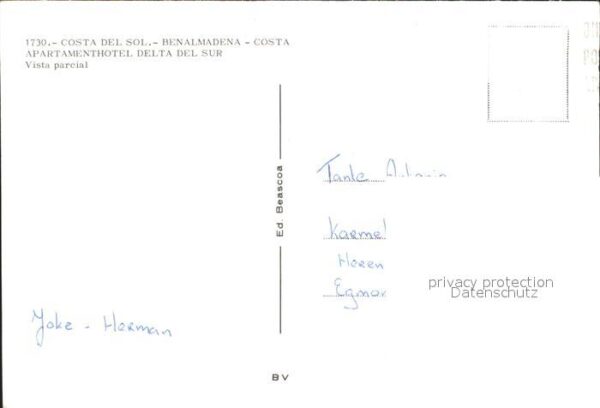 1730.- COSTA DEL SOL.- BENALMADENA - COSTA
APARTAMENTHOTEL DELTA DEL SUR
Vista parcial
Ed. Beascoa
Tante
Karmel
Heren
Egmor
privacy protection
Datenschutz
Joke - Herman
BV